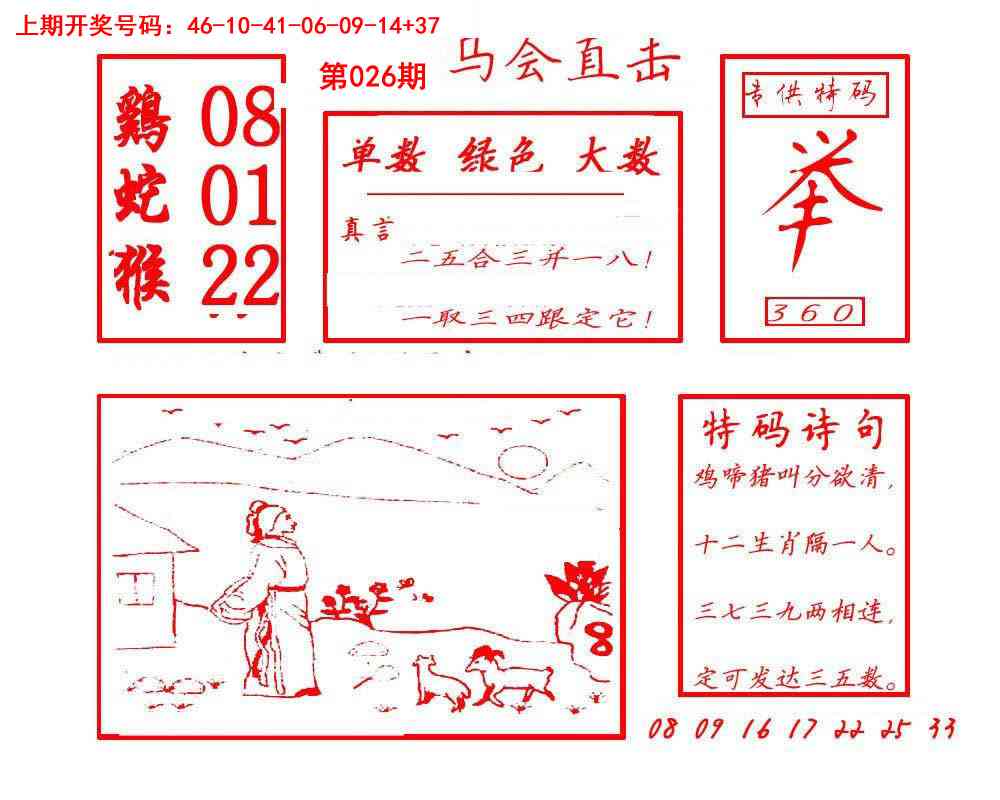 上期开奖号码：46-10-41-06-09-14+37
第026期 马会直击
鷄 08
蛇 01
猴 22
单数 绿色 大数
真言
二五合三并一八！
一取三四跟定它！
专供特码
举
360
8
特码诗句
鸡啼猪叫分欲清，
十二生肖隔一人。
三七三九两相连，
定可发达三五数。
08 09 16 17 22 25 33